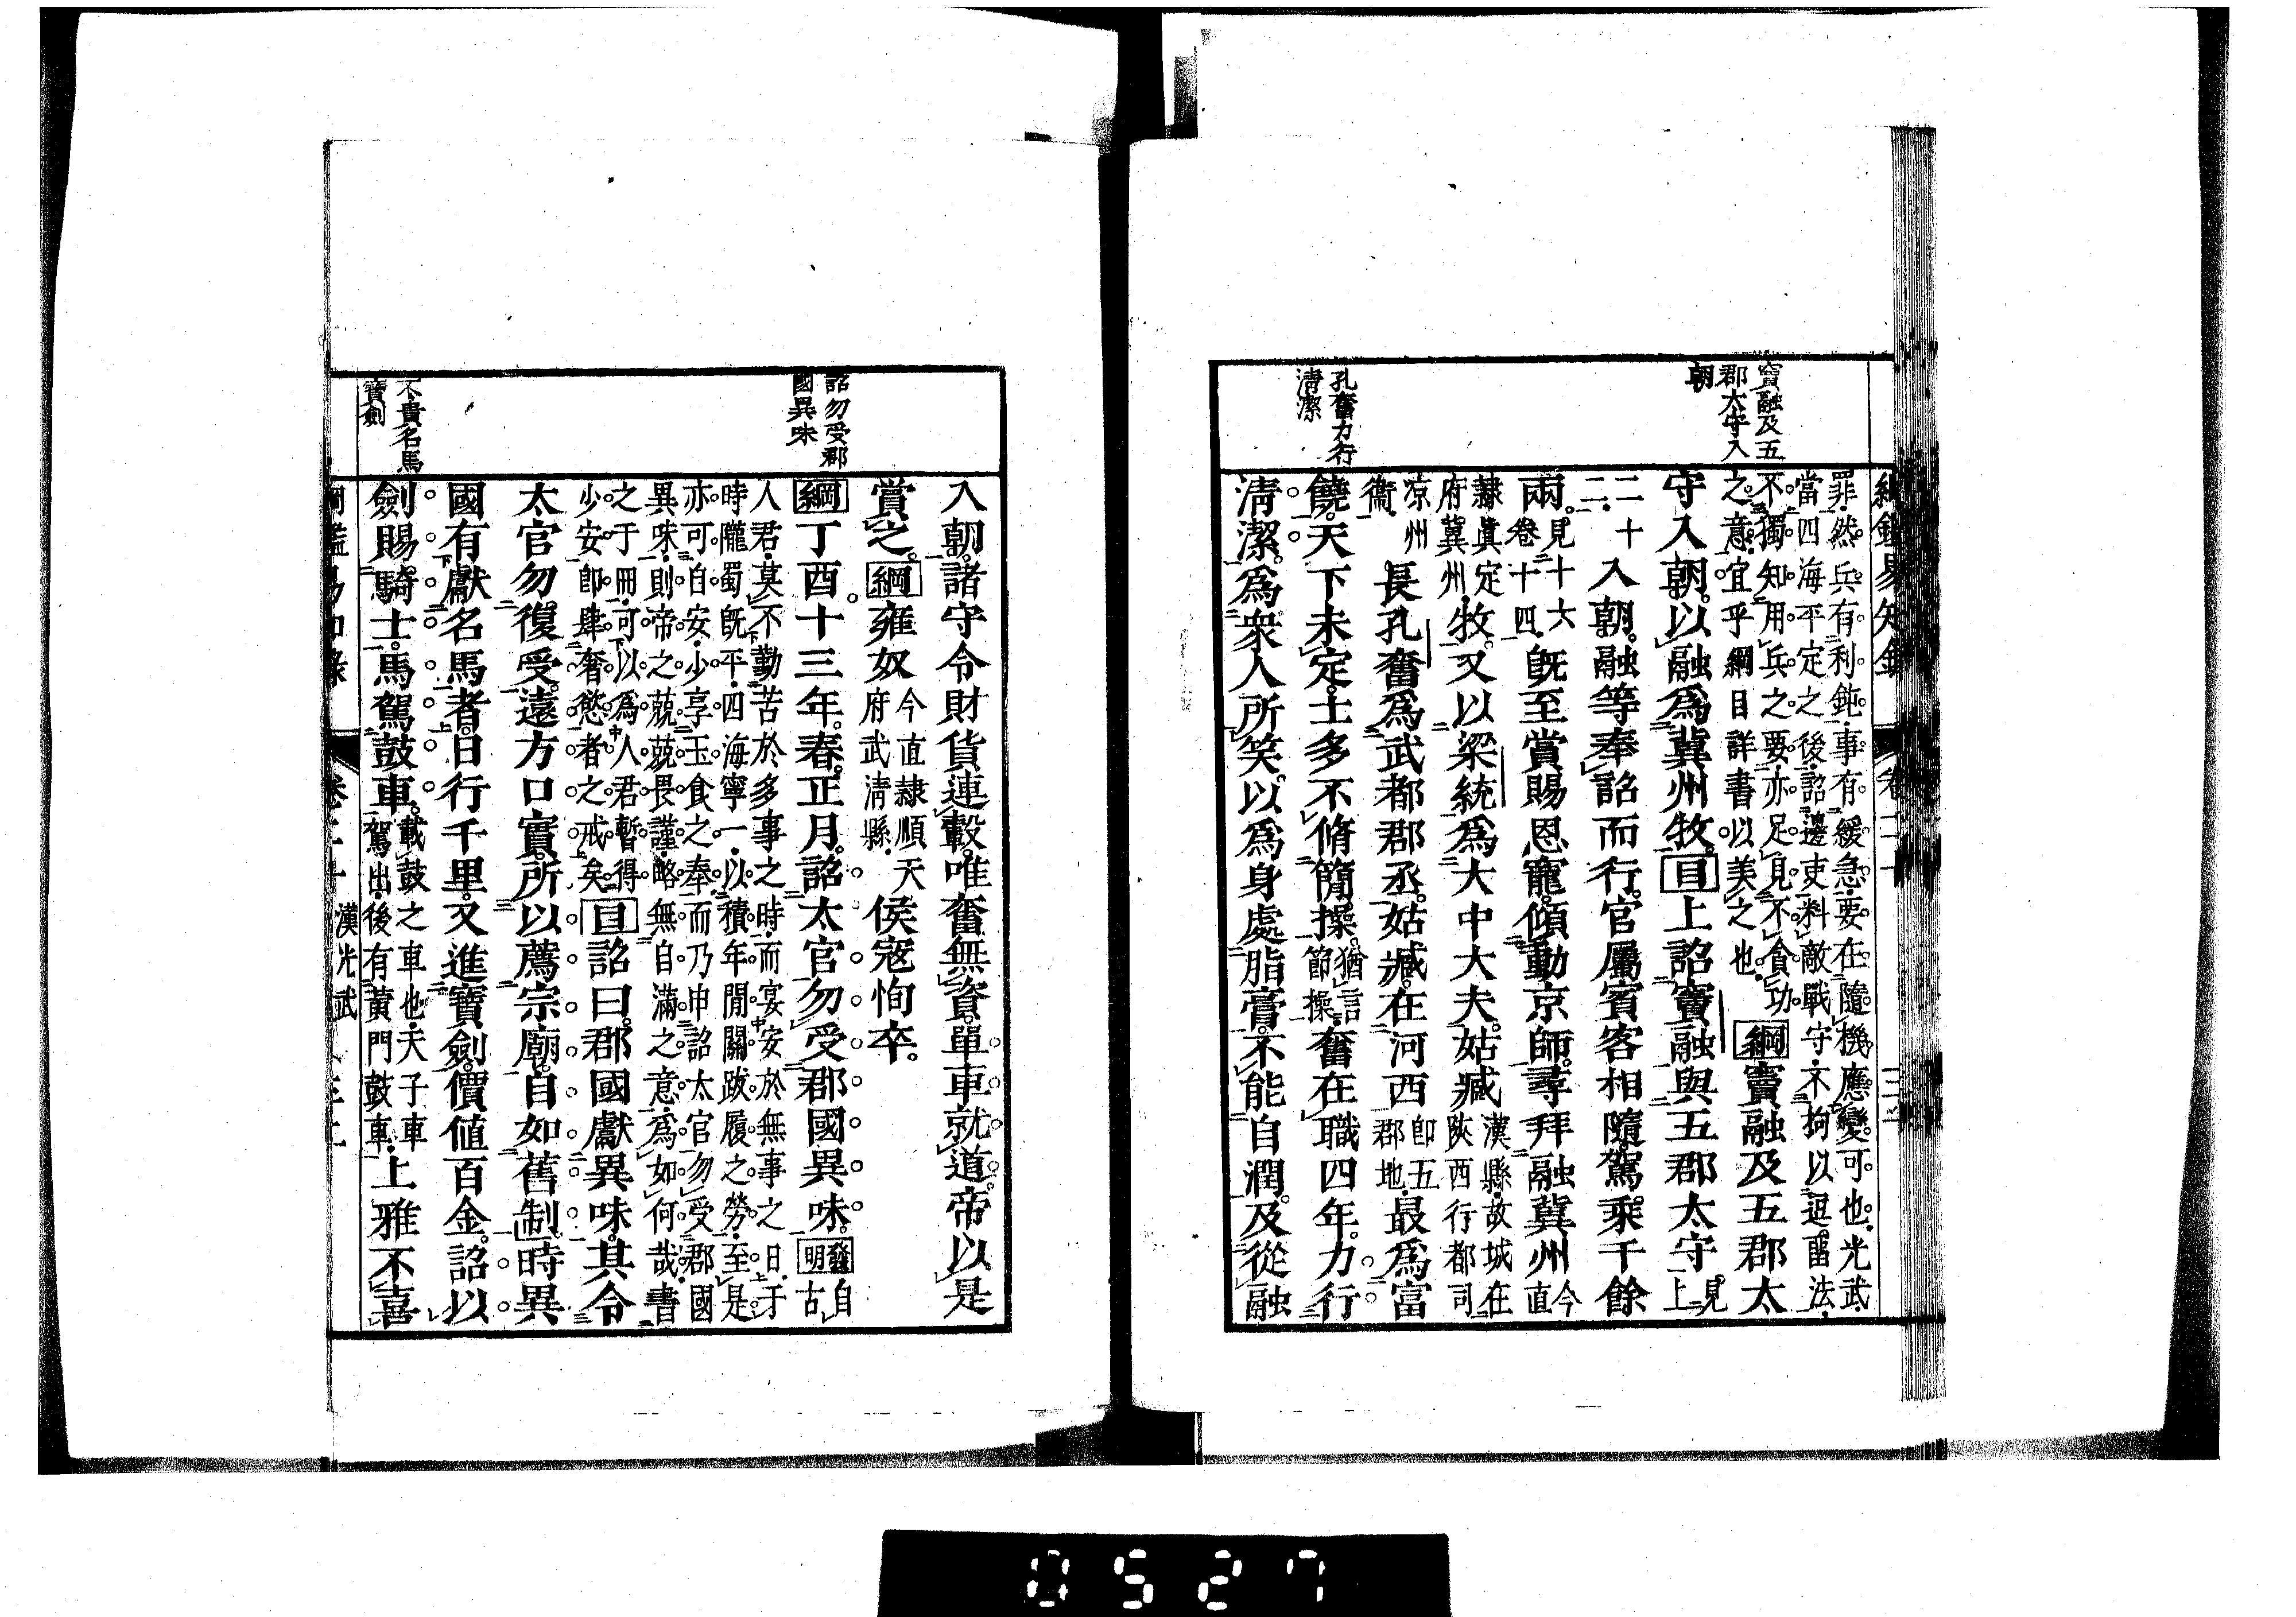 竇融及五
郡太守入
朝
孔奮力行
清潔
罪然兵有利鈍事有緩急要在隨機應變可也光武
當四海平定之後詔邊吏料敵戰守不拘以逗留法
不獨知用兵之要亦足見不貪功
之意宜乎綱目詳書以美之也
綱竇融及五郡太
守入朝以融爲冀州牧目上詔竇融與五郡太守見上
二十二入朝融等奉詔而行官屬賓客相隨駕乘千餘
兩見十六卷十四既至賞賜恩寵傾動京師尋拜融冀州今直
隸眞定府冀州牧又以梁統爲大中大夫姑臧漢縣故城在陝西行都司
涼州衞長孔奮爲武都郡丞姑臧在河西卽五郡地最爲富
饒天下未定士多不脩簡操猶言節操奮在職四年力行
清潔爲衆人所笑以爲身處脂膏不能自潤及從融
詔勿受郡
國異味
不貴名馬
寶劍
入朝諸守令財貨連轂唯奮無資單車就道帝以是
賞之綱雍奴今直隸順天府武淸縣侯寇恂卒
綱丁酉十三年春正月詔太官勿受郡國異味發明自古
人君莫不勤苦於多事之時而宴安於無事之日于
時隴蜀既平四海寧一以積年閒關跋履之勞至是
亦可自安少享玉食之奉而乃申詔太官勿受郡國
異味則帝之兢兢畏謹略無自滿之意爲如何哉書
之于冊可以爲人君暫得
少安卽肆奢慾者之戒矣
目詔曰郡國獻異味其令
太官勿復受遠方口實所以薦宗廟自如舊制時異
國有獻名馬者日行千里又進寶劍價值百金詔以
劍賜騎士馬駕鼓車載鼓之車也天子車駕出後有黃門鼓車上雅不喜
卷二十 漢光武